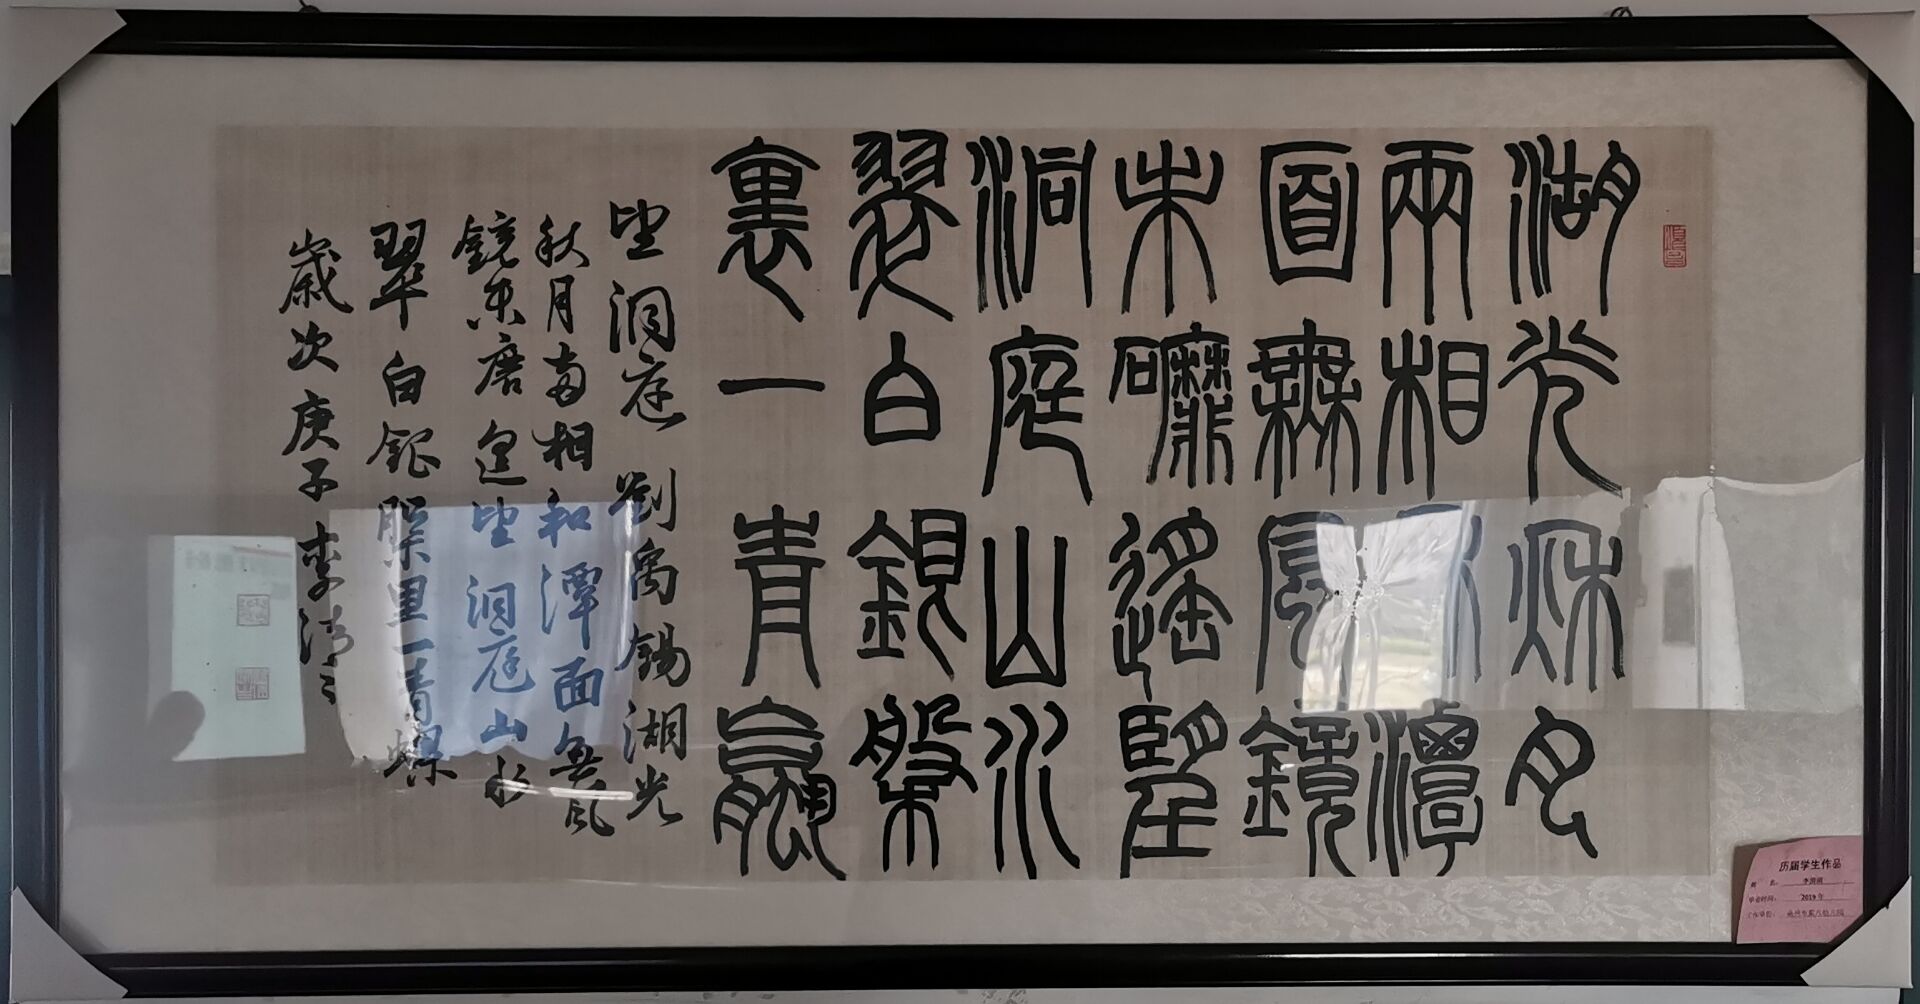 湖光秋月
兩相和潭
面無風鏡
未䃺遙望
洞庭山水
翠白銀槃
裏一青蠃
望洞庭 劉禹錫 湖光
秋月兩相和潭面無風
鏡未磨遥望洞庭山水
翠白銀盤里一青螺
歲次庚子李
历届学生作品
姓 名：李
毕业时间：2019年
工作单位：